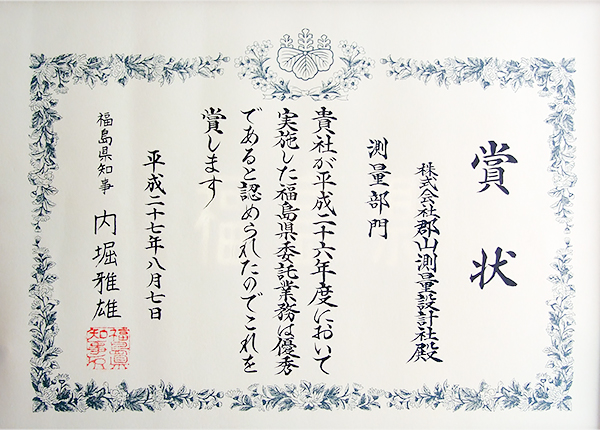 賞状
株式会社郡山測量設計社殿
測量部門
貴社が平成二十六年度において
実施した福島県委託業務は優秀
であると認められたのでこれを
賞します
平成二十七年八月七日
福島県知事 内堀雅雄
福島県知事印